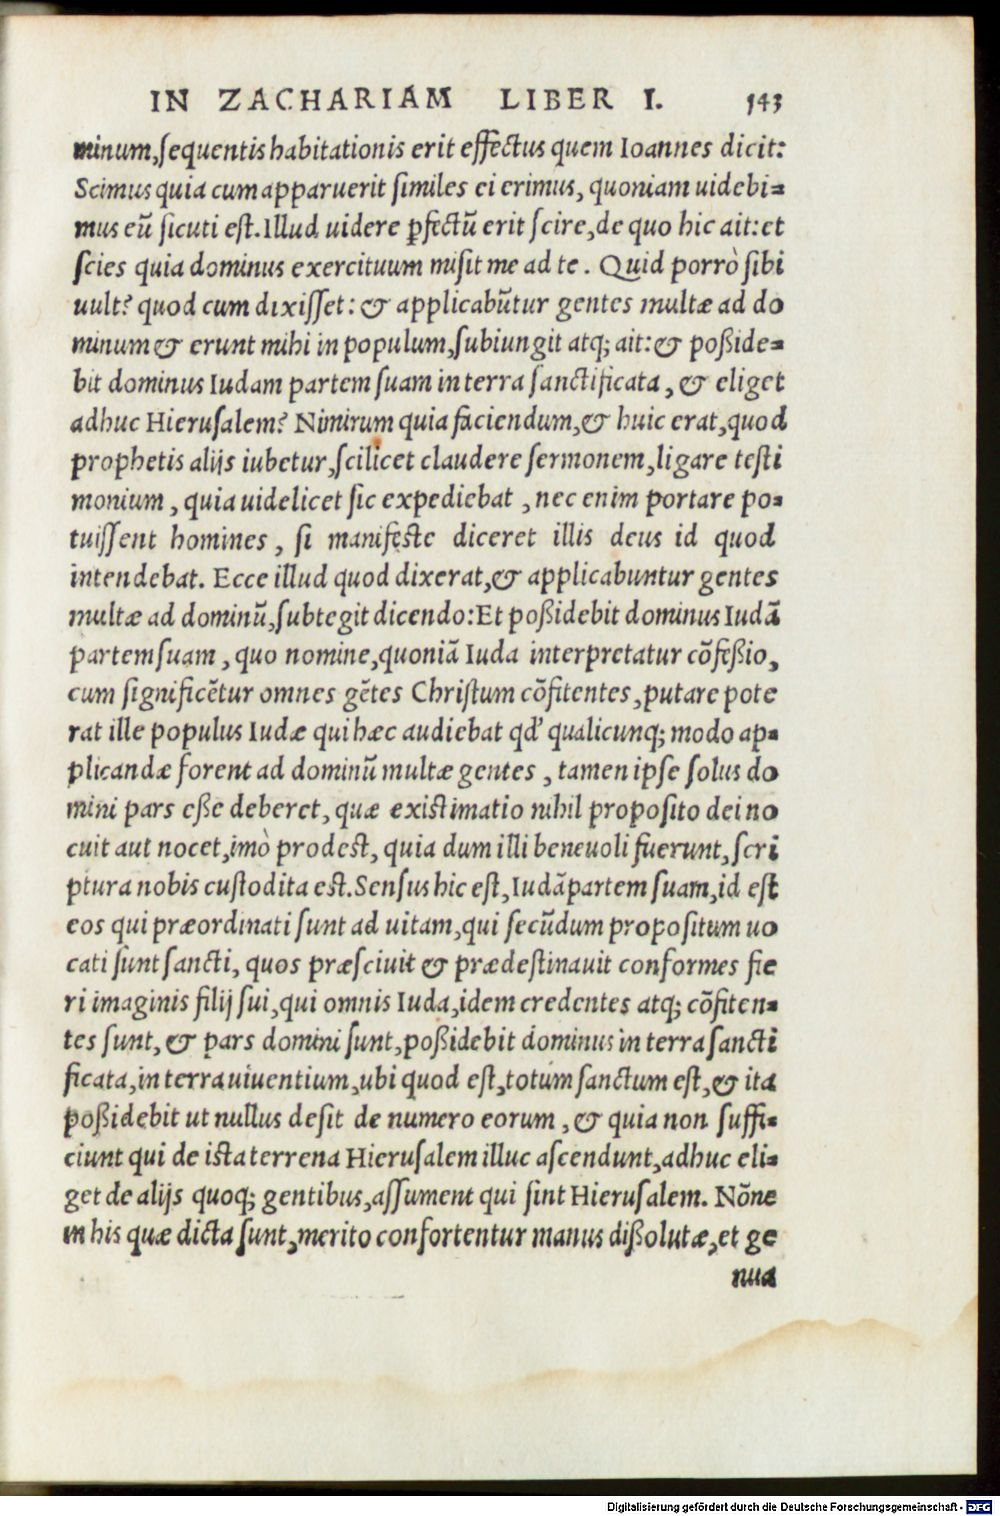 IN ZACHARIAM LIBER I. 143
minum,sequentis habitationis erit effectus quem Ioannes dicit:
Scimus quia cum apparuerit similes ei erimus, quoniam uidebi=
mus eū sicuti est.Illud uidere ꝑfectū erit scire,de quo hic ait:et
scies quia dominus exercituum misit me ad te. Quid porrò sibi
uult? quod cum dixisset: & applicabūtur gentes multæ ad do
minum & erunt mihi in populum,subiungit atq; ait:& poßide=
bit dominus Iudam partem suam in terra sanctificata, & eliget
adhuc Hierusalem? Nimirum quia faciendum,& huic erat,quod
prophetis alijs iubetur,scilicet claudere sermonem,ligare testi
monium, quia uidelicet sic expediebat, nec enim portare po=
tuissent homines, si manifeste diceret illis deus id quod
intendebat. Ecce illud quod dixerat,& applicabuntur gentes
multæ ad dominū,subtegit dicendo:Et poßidebit dominus Iudā
partem suam, quo nomine,quoniā Iuda interpretatur cōfeßio,
cum significētur omnes gētes Christum cōfitentes,putare pote
rat ille populus Iudæ qui hæc audiebat qd' qualicunq; modo ap=
plicandæ forent ad dominū multæ gentes, tamen ipse solus do
mini pars eße deberet, quæ existimatio nihil proposito dei no
cuit aut nocet,imò prodest, quia dum illi beneuoli fuerunt,scri
ptura nobis custodita est.Sensus hic est,Iudā partem suam,id est
eos qui præordinati sunt ad uitam,qui secūdum propositum uo
cati sunt sancti, quos præsciuit & prædestinauit conformes fie
ri imaginis filij sui,qui omnis Iuda,idem credentes atq; cōfiten=
tes sunt,& pars domini sunt,poßidebit dominus in terra sancti
ficata,in terra uiuentium,ubi quod est,totum sanctum est,& ita
poßidebit ut nullus desit de numero eorum, & quia non suffi=
ciunt qui de ista terrena Hierusalem illuc ascendunt,adhuc eli=
get de alijs quoq; gentibus,assument qui sint Hierusalem. Nōne
in his quæ dicta sunt,merito confortentur manus dißolutæ,et ge
nua
Digitalisierung gefördert durch die Deutsche Forschungsgemeinschaft - DFG